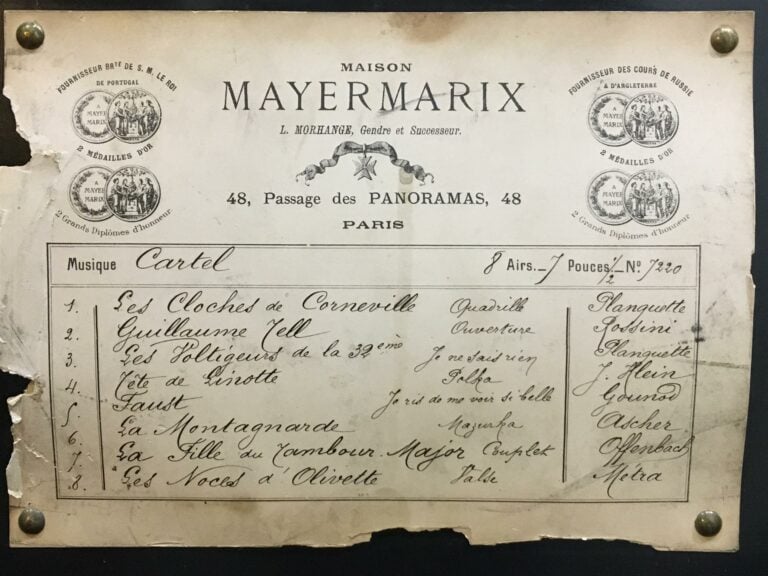 FOURNISSEUR BRTÉ DE S. M. LE ROI
DE PORTUGAL
A
MAYER
MARIX
2 MÉDAILLES D'OR
A
MAYER
MARIX
2 Grands Diplômes d'honneur
MAISON
MAYERMARIX
L. MORHANGE, Gendre et Successeur.
48, Passage des PANORAMAS, 48
PARIS
FOURNISSEUR DES COURS DE RUSSIE
& D'ANGLETERRE
A
MAYER
MARIX
2 MÉDAILLES D'OR
A
MAYER
MARIX
2 Grands Diplômes d'honneur
Musique Cartel 8 Airs. - 7 Pouces 1/2 - No. 7220
1. Les Cloches de Corneville Quadrille Planquette
2. Guillaume Tell Ouverture Rossini
3. Les Voltigeurs de la 32ème Je ne sais rien Planquette
4. Tête de Linotte Polka J. Klein
5. Faust Je ris de me voir si belle Gounod
6. La Montagnarde Mazurka Ascher
7. La Fille du Tambour Major Couplet Offenbach
8. Les Noces d'Olivette Valse Métra